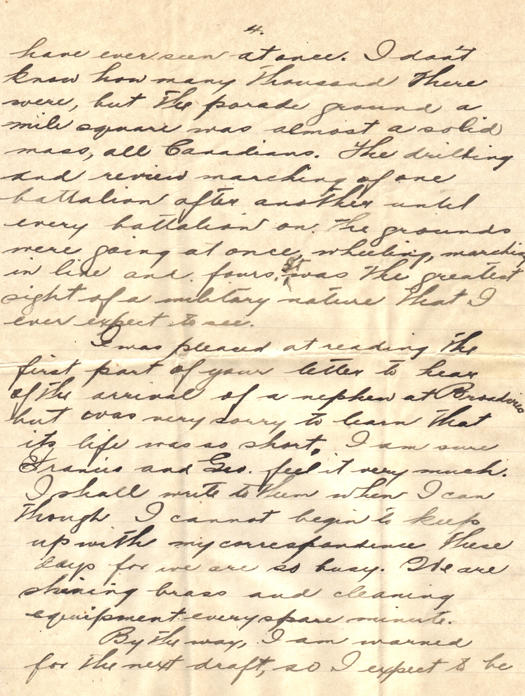 4.
have ever seen at once. I don't
know how many thousand there
were, but the parade ground a
mile square was almost a solid
mass, all Canadians. The drilling
and review marching of one
battalion after another until
every battalion on the grounds
were going at once, wheeling, marching
in line and fours. It was the greatest
sight of a military nature that I
ever expect to see.
I was pleased at reading the
first part of your letter to hear
of the arrival of a nephew at
but was very sorry to learn that
its life was so short. I am sure
Francis and Geo. feel it very much.
I shall write to them when I can
though I cannot begin to keep
up with my correspondence these
days for we are so busy. We are
shining brass and cleaning
equipment every spare minute.
By the way, I am warned
for the next draft, so I expect to be